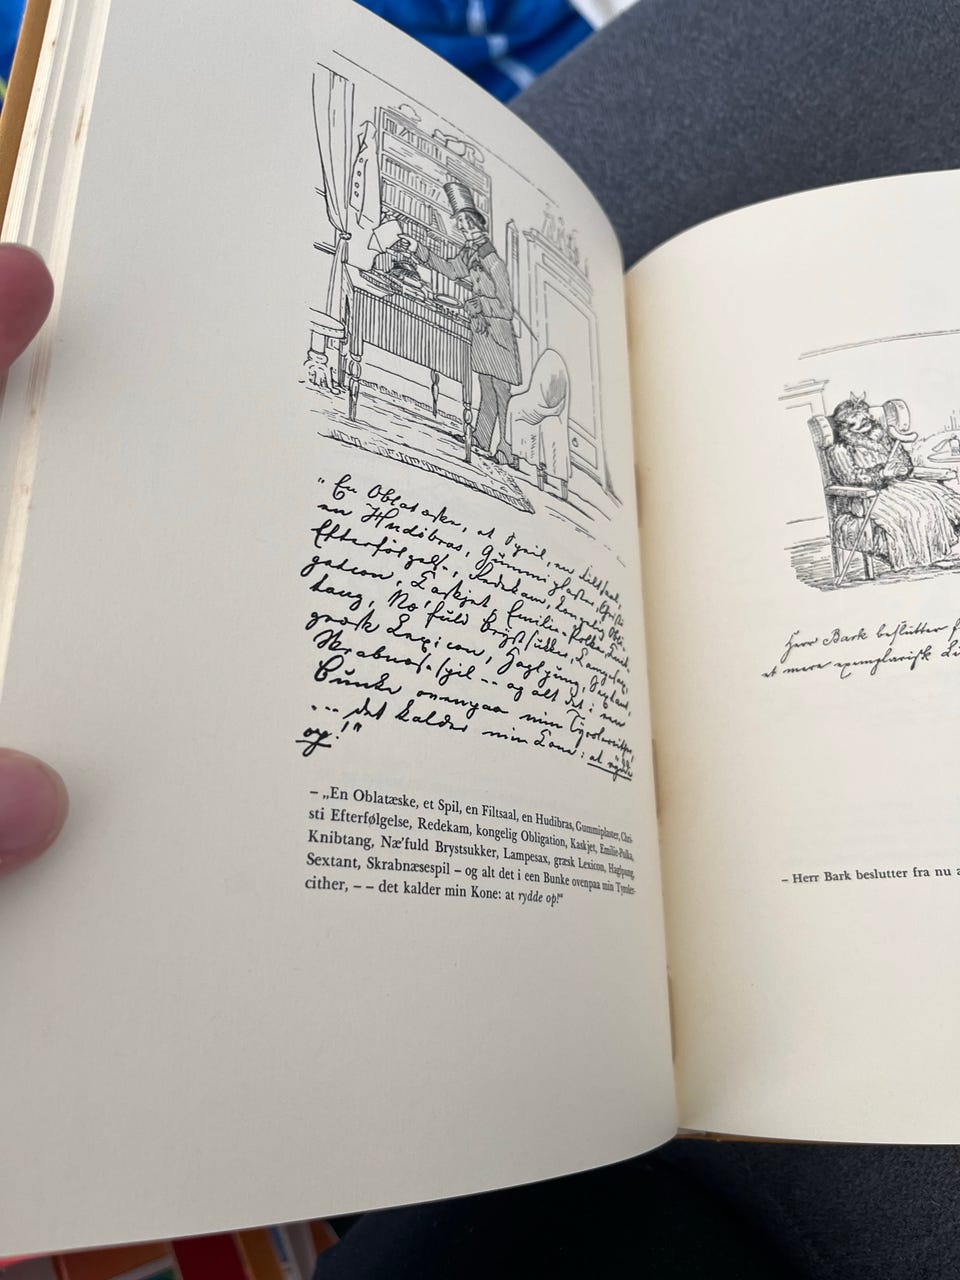 "En Oblatæske, et Spil, en Filtsaal,
en Hudibras, Gummiplaster, Christi
Efterfølgelse, Redekam, kongelig Obli-
gation, Kaskjet, Emilie-Polka, Knib-
tang, Næ'fuld Brystsukker, Lampesax,
græsk Lexicon, Haglpung, Sextant,
Skrabnæsespil -- og alt det i een
Bunke ovenpaa min Tyrolercither,
... det kalder min Kone: at rydde
op!"
– „En Oblatæske, et Spil, en Filtsaal, en Hudibras, Gummiplaster, Chri-
sti Efterfølgelse, Redekam, kongelig Obligation, Kaskjet, Emilie-Polka,
Knibtang, Næ'fuld Brystsukker, Lampesax, græsk Lexicon, Haglpung,
Sextant, Skrabnæsespil – og alt det i een Bunke ovenpaa min Tyroler-
cither, – – det kalder min Kone: at rydde op!“
Herr Bark beslutter f
et mere exemplarisk Li
– Herr Bark beslutter fra nu a